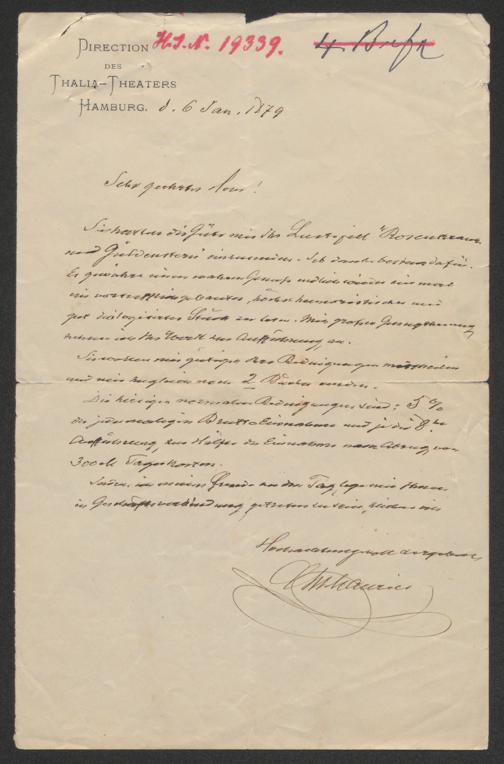 DIRECTION
DES
THALIA-THEATERS
HAMBURG.
H.I.N. 19339.
4 Briefe
d. 6 Jan. 1879
Sehr geehrter Herr!
Sie hatten die Güte mir Ihr Lustspiel "Rosenkranz
und Güldenstern" einzureichen. Ich danke bestens dafür.
Es gewährt einen wahren Genuss endlich wieder einmal
ein vortrefflich gebautes, höchst humoristisches und
gut dialogisirtes Stück zu lesen. Mit grosser Genugthuung
nehme ich Ihr Werk zur Aufführung an.
Sie wollen mir gütigst Ihre Bedingungen mittheilen
und mir zugleich noch 2 Bücher senden.
Die hiesigen normalen Bedingungen sind: 5 %
der jedesmaligen Brutto Einnahme und je die 8te
Aufführung, zur Hälfte der Einnahme nach Abzug von
300 M Tageskosten.
Indem ich meine Freude an den Tag lege mit Ihnen
in Geschäftsverbindung getreten zu sein, zeichne ich
Hochachtungsvoll ergebenst
Maurice